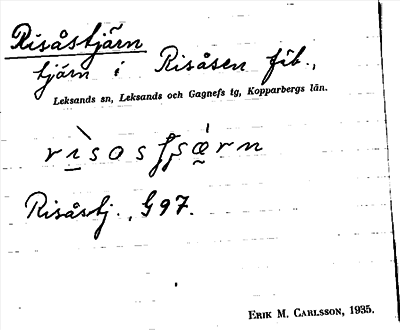 Risåstjärn
tjärn i Risåsen fäb.,
Leksands sn, Leksands och Gagnefs tg, Kopparbergs län.
Risåstj., G97.
ERIK M. CARLSSON, 1935.